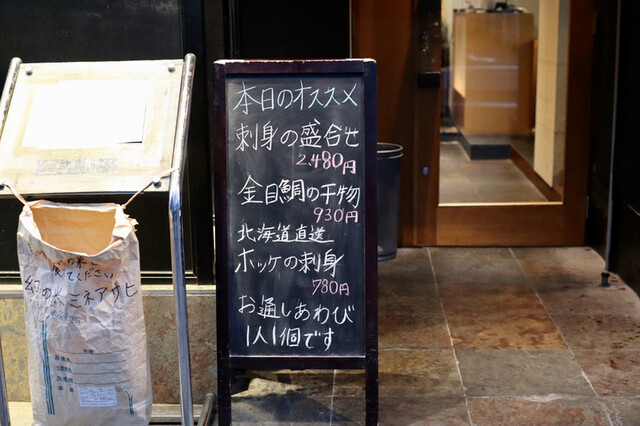 本日のオススメ
刺身の盛合せ
2,480円
金目鯛の干物
930円
北海道直送
ホッケの刺身
780円
お通しあわび
1人1個です
幻の米ミネアサヒ